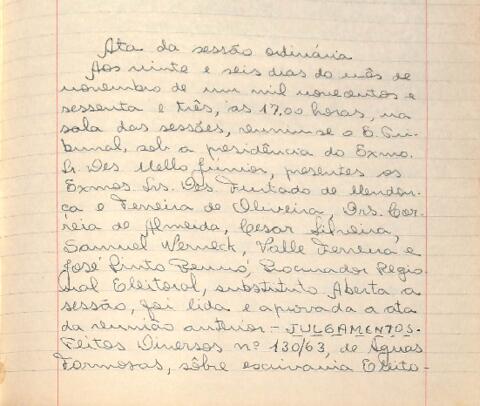 Ata da sessão ordinária
Aos vinte e seis dias do mês de
novembro de um mil novecentos e
sessenta e três, às 17.00 horas, na
sala das sessões, reuniu-se o E. Tri-
bunal, sob a presidência do Exmo.
Sr. Des. Mello Júnior, presentes os
Exmos. Srs. Des. Furtado de Mendon-
ça e Ferreira de Oliveira, Drs. Cor-
rêia de Almeida, Cesar Silveira,
Samuel Werneck, Valle Ferreira e
José Pinto Renó, Procurador Regio-
nal Eleitoral, substituto. Aberta a
sessão, foi lida e aprovada a ata
da reunião anterior. - JULGAMENTOS -
Feitos Diversos nº 130/63, de Águas
Formosas, sôbre escrivania Eleito-